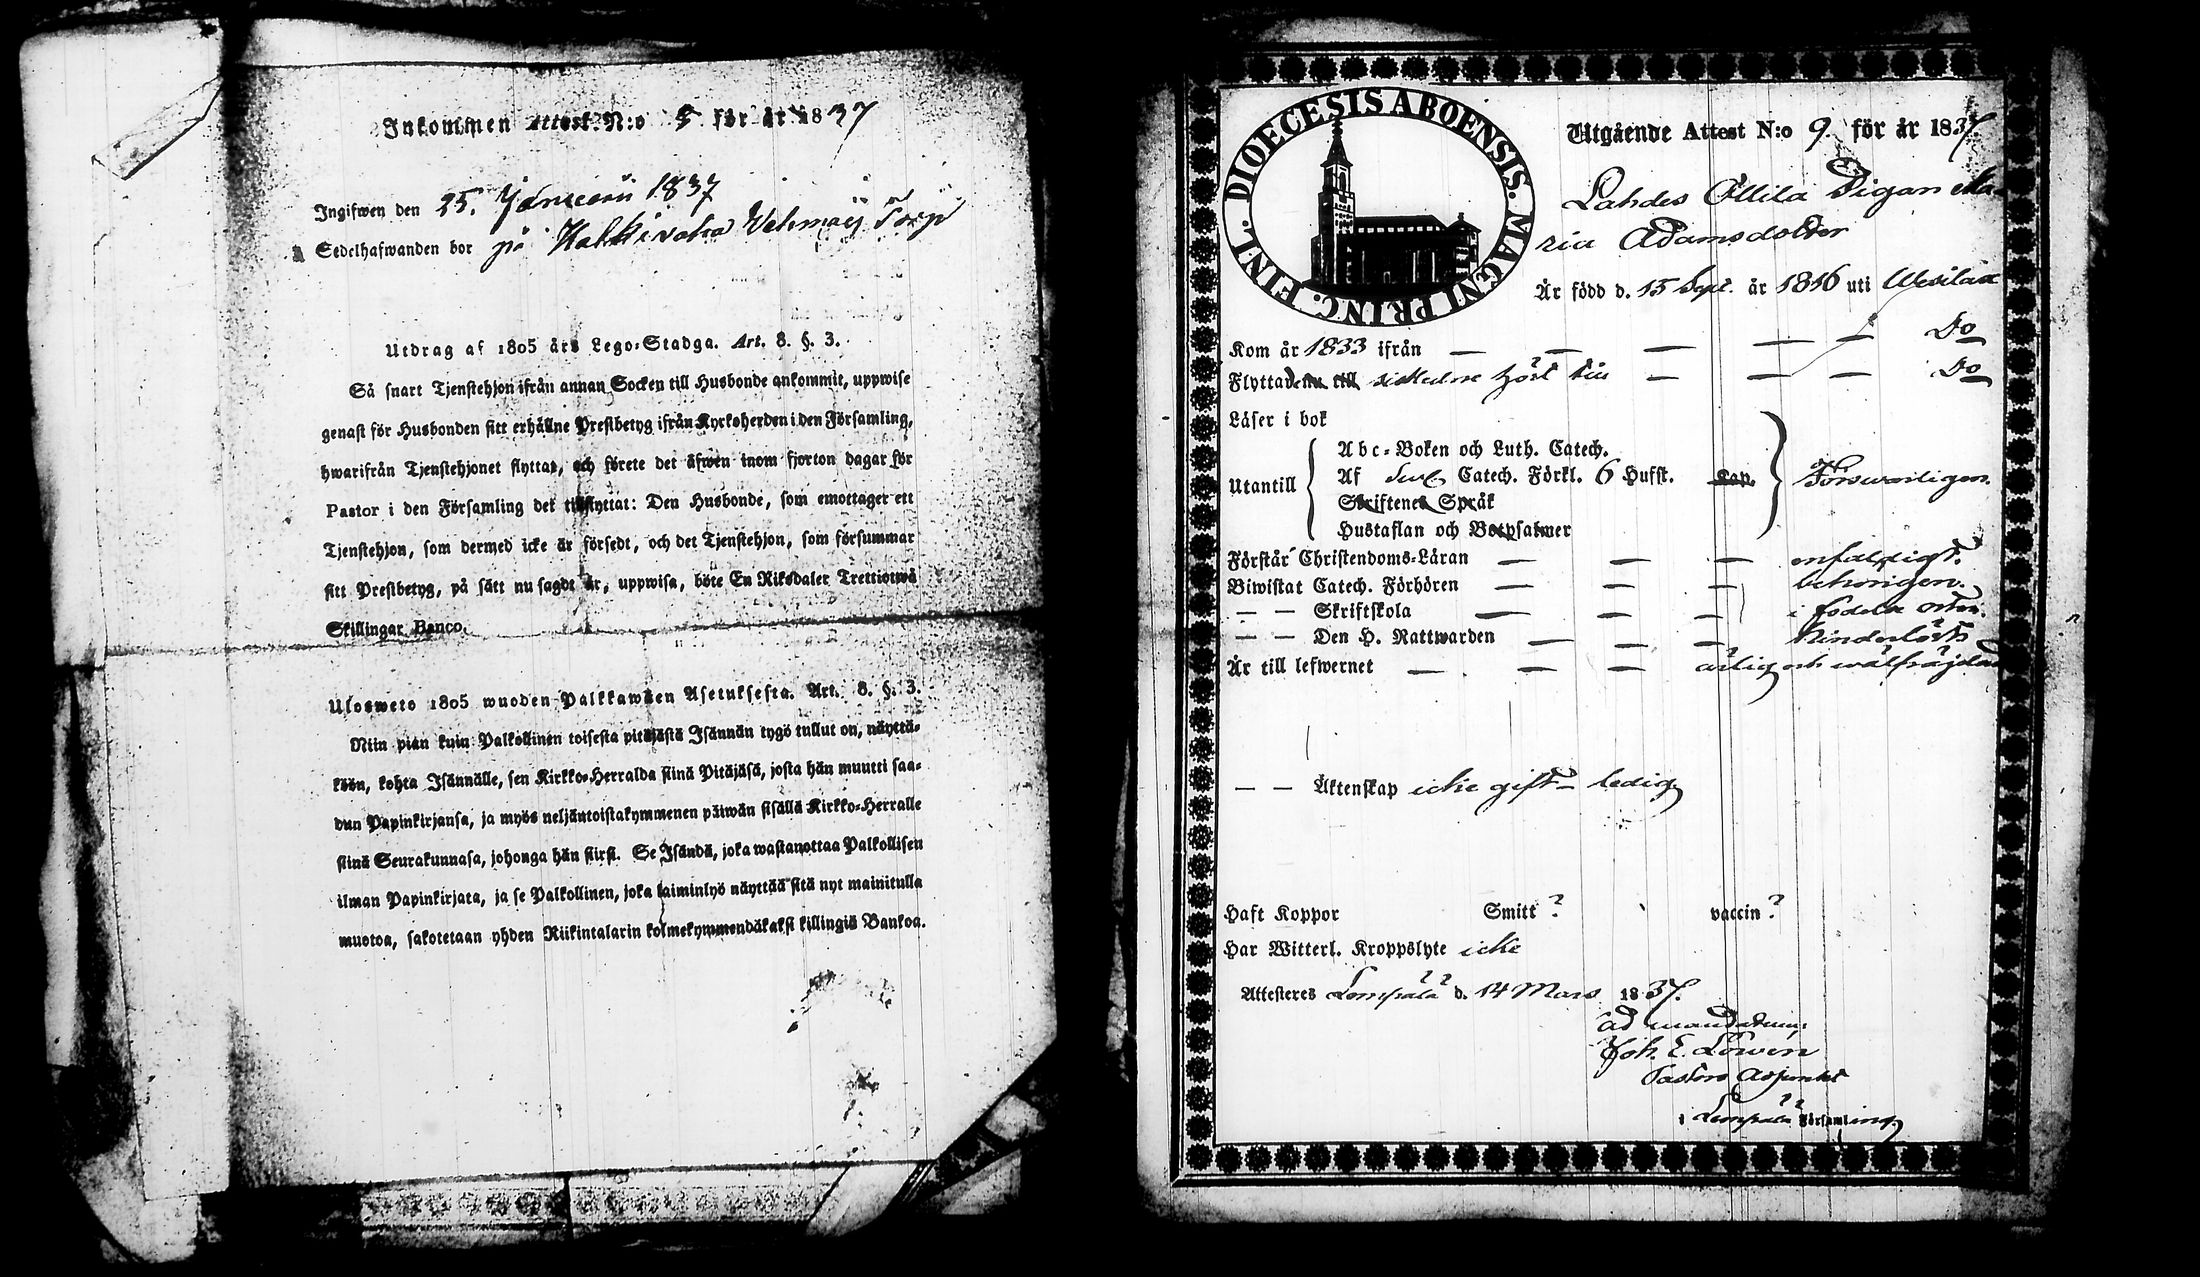 Inkommen Attest. N:o 5 för år 1837
Ingifwen den 25. Januarii 1837
Sedelhafwanden bor på Kalkivaha Vehmaij Torp
Utdrag af 1805 års Lego-Stadga. Art. 8. §. 3.
Så snart Tjenstehjon ifrån annan Socken till Husbonde ankommit, uppwise
genast för Husbonden sitt erhållne Prestbetyg ifrån Kyrkoherden i den Församling,
hwarifrån Tjenstehjonet flyttat, och förete det äfwen inom fjorton dagar för
Pastor i den Församling det tillflyttat: Den Husbonde, som emottager ett
Tjenstehjon, som dermed icke är försedt, och det Tjenstehjon, som försummar
sitt Prestbetyg, på sätt nu sagdt är, uppwisa, böte En Riksdaler Trettiotwå
Skillingar Banco.
Ulosweto 1805 wuoden Palkkawäen Asetuksesta. Art. 8. §. 3.
Niin pian kuin Palkollinen toisesta pitäjästä Isännän tygö tullut on, näyttä-
köön, kohta Isännälle, sen Kirkko-Herralda siinä Pitäjäsä, josta hän muutti saa-
dun Papinkirjansa, ja myös neljäntoistakymmenen päiwän sisällä Kirkko-Herralle
siinä Seurakunnasa, johonga hän siirsi. Se Isändä, joka wastanottaa Palkollisen
ilman Papinkirjata, ja se Palkollinen, joka laiminlyö näyttää sitä nyt mainitulla
muotoa, sakotetaan yhden Riikintalarin kolmekymmendäkaksi killingiä Bankoa.
DIOECESIS ABOENSIS. MAGNI PRINC. FINL.
Utgående Attest N:o 9. för år 1837.
Lahdes Ollila Pigan Ma
ria Adamsdotter
Är född d. 15 Sept. år 1816 uti Wesilax
Kom år 1833 ifrån — — — — — Do
Flyttade nu till — — — Do
Läser i bok
Utantill
Abc-Boken och Luth. Catech.
Af Sveb. Catech. Förkl. 6 Hufst. Kap. Försvarligen.
Skriftenes Språk
Hustaflan och Botpsalmer
Förstår Christendoms-Läran — — — enfaldigt.
Biwistat Catech. Förhören — — — behörigen.
— — Skriftskola — — — i födelse orten.
— — Den H. Nattwarden — — — hinderlöst
Är till lefwernet — — — ärlig och wälfräjdad
— — Äktenskap icke gift – ledig
Haft Koppor Smitt ? vaccin ?
Har Witterl. Kroppslyte icke
Attesteres Lempälä d. 14 Mars 1837.
ad mandatum:
Joh. E. Lowen
Pastors Adjunkt
i Lempälä Församling